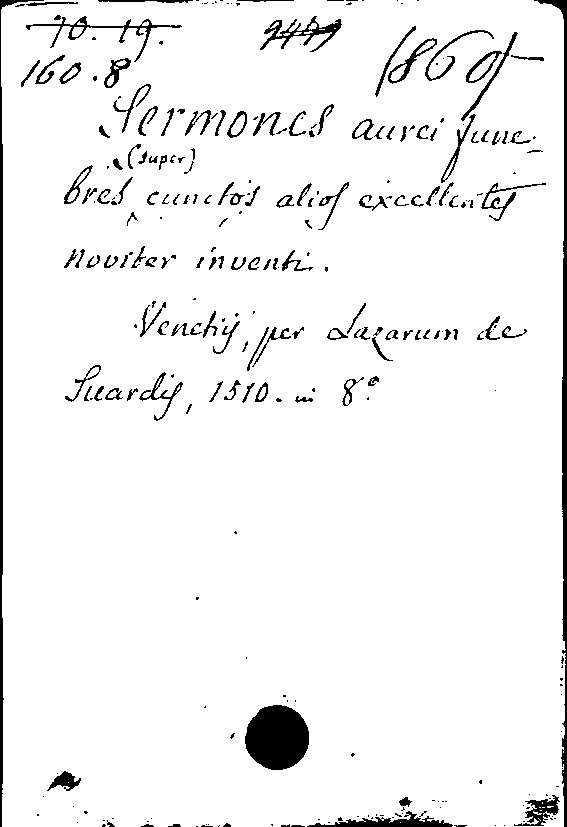 70. 19.
160.8
(860)
Sermones aurei fune-
(super)
bres cunctos alios excellentes
noviter inventi.
Venetijs, per Lazarum de
Suardis, 1510. in 8.º